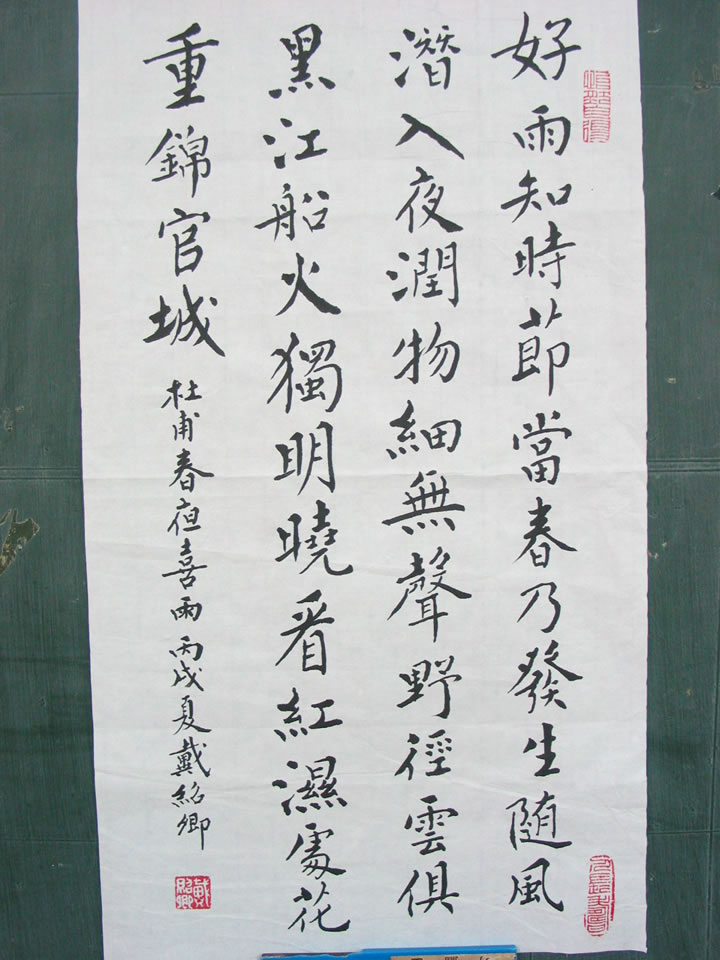 好雨知時節當春乃發生随風
潛入夜潤物細無聲野徑雲俱
黑江船火獨明曉看紅濕處花
重錦官城
杜甫春夜喜雨丙戌夏戴紹卿
戴紹卿